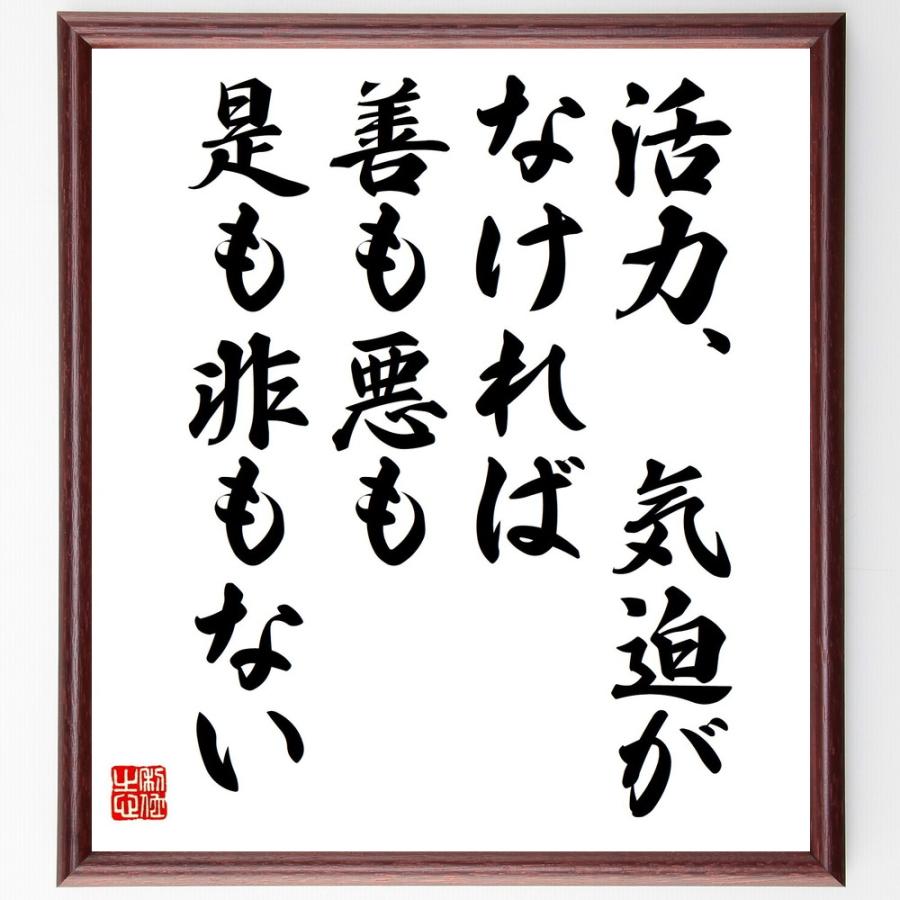 活力、気迫が
なければ
善も悪も
是も非もない